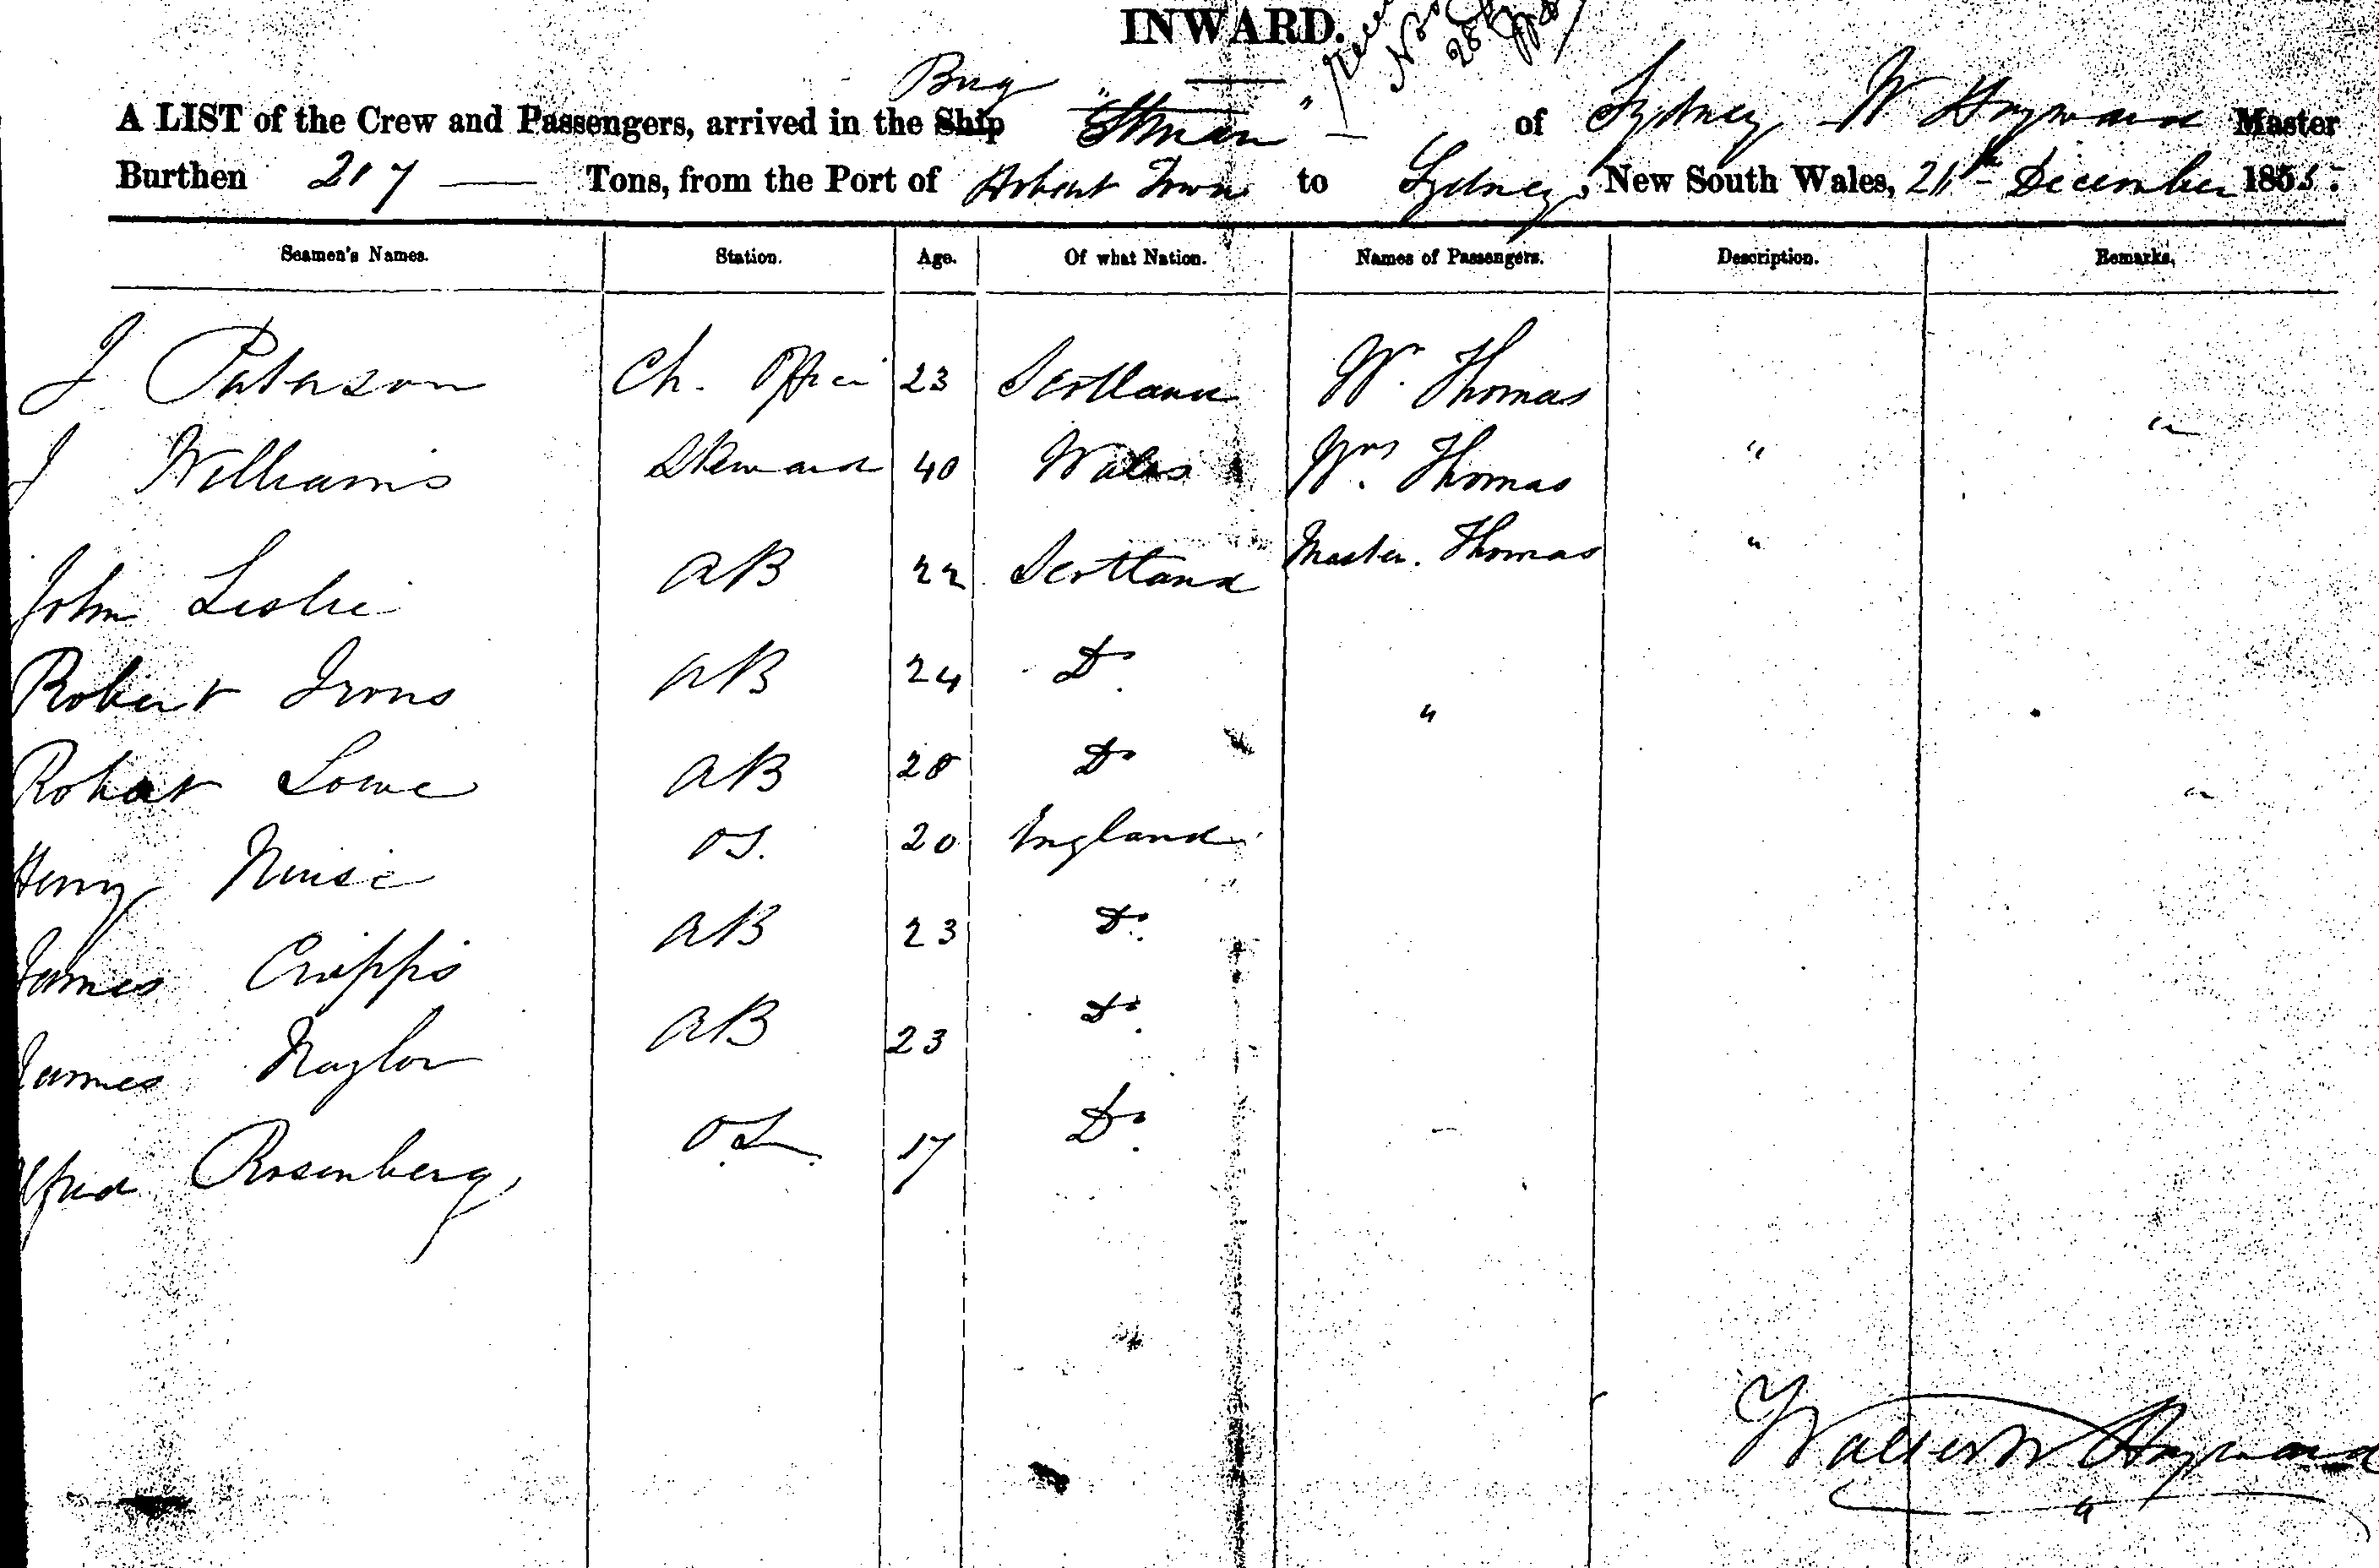 INWARD.
Brig
A LIST of the Crew and Passengers, arrived in the Ship " " of Sydney W Hayward Master
Burthen 217 Tons, from the Port of Hobart Town to Sydney, New South Wales, December 185
Seamen's Names. Station. Age. Of what Nation. Names of Passengers. Description. Remarks.
J Paterson Ch. Officer 23 Scotland Mr. Thomas
J Williams Steward 40 Wales Mrs. Thomas " "
John Leslie AB 22 Scotland Master. Thomas "
Robert Irons AB 24 Do "
Robert Lowe AB 28 Do "
Henry OS. 20 England
James Cripps AB 23 Do
James Naylor AB 23 Do
Alfred Rosenberg O.S. 17 Do
Walter W Hayward